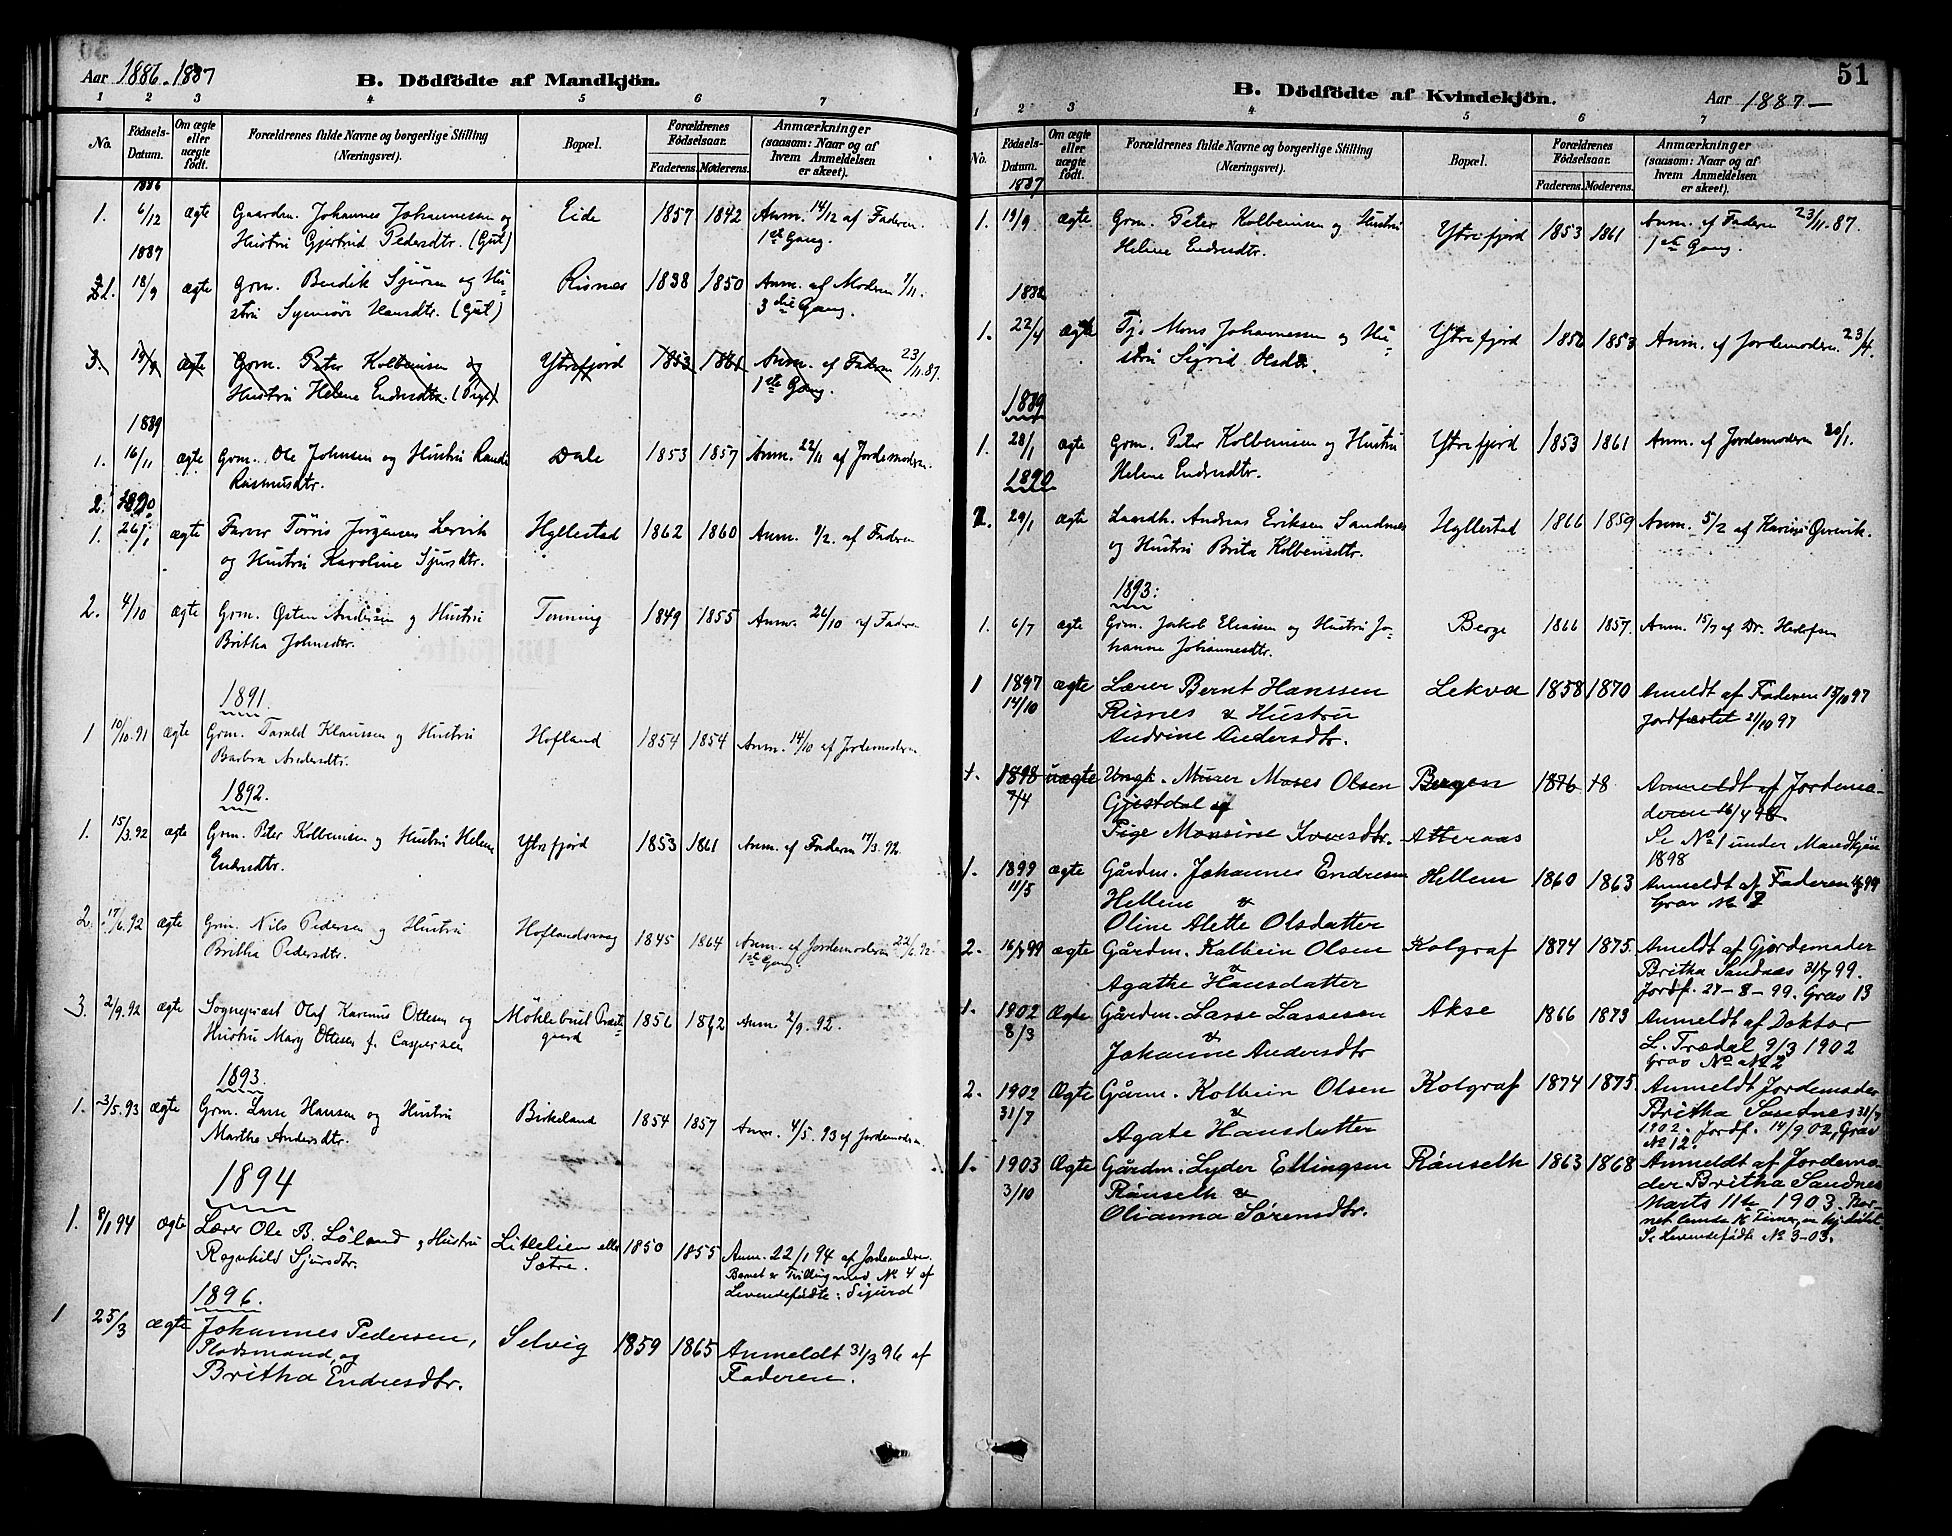 Aar 1886-1887
B. Dödfödte af Mandkjön.
1 2 3 4 5 6 7
No.
Födsels-Datum.
Om ægte eller uægte födt.
Forældrenes fulde Navne og borgerlige Stilling (Næringsvei).
Bopæl.
Forældrenes Födselsaar.
Faderens. Moderens.
Anmærkninger (saasom: Naar og af hvem Anmeldelsen er skeet).
1886
1. 6/12 ægte Gaardm. Johannes Johannessen og Eide 1857 1842 Anm. 14/12 af Faderen.
Hustru Gjertrud Pedersdtr. (Gut) 1ste Gang.
1887
1. 18/9 ægte Grm. Bendik Sjursen og Hu- Risnes 1838 1850 Anm. af Moderen 1/11.
stru Synnøve Hansdtr. (Gut) 3die Gang.
3. 19/9 ægte Grm. Peter Kolbeinsen og Ytrefjord 1853 1861 Anm. af Faderen 23/11.87.
Hustru Helene Endresdtr. (Pige) 1ste Gang.
1889
1. 16/11 ægte Grm. Ole Johnsen og Hustru Randi Dale 1853 1857 Anm. 22/11 af Jordemoderen.
Rasmusdtr.
2. 1890
1. 26/1 ægte Farver Tørris Jørgensen Lervik Hyllestad 1862 1860 Anm. /2. af Faderen
og Hustru Karoline Sjursdtr.
2. 4/10 ægte Grm. Østen Andersen og Hustru Tonning 1849 1855 Anm. 26/10 af Faderen
Britha Johnsdtr.
1891.
1 10/10.91 ægte Grm. Tarald Klaussen og Hustru Hofland 1854 1854 Anm. 14/10 af Jordemoderen
Barbra Andersdtr.
1892.
1. 15/3.92 ægte Grm. Peter Kolbeinsen og Hustru Helene Ytrefjord 1853 1861 Anm. af Faderen 17/3.92.
Endresdtr.
2. 17/6.92 ægte Grm. Nils Pedersen og Hustru Hoflandsvaag 1845 1864 Anm. af Jordemoderen 22/6.92.
Britha Pedersdtr. 1ste Gang.
3. 2/9.92 ægte Sognepræst Olaf Karenus Ottesen og Möklebust Præste- 1856 1862 Anm 2/9.92.
Hustru Mary Ottesen f. Caspersen gaard
1893.
1. 3/5.93 ægte Grm. Lasse Hansen og Hustru Birkeland 1854 1857 Anm. 4/5.93 af Jordemoderen.
Marthe Andersdtr.
1894
1. 8/1 94 ægte Lærer Ole B. Löland og Hustru Litlelien eller 1850 1855 Anm. 22/1 94 af Jordemoderen.
Ragnhild Sjursdtr. Sætre. Barnet er Tvilling med No 4 af
Levendefødte: Sigurd
1896.
1 25/3 ægte Johannes Pedersen, Selvig 1859 1865 Anmeldt 31/3 96 af
Pladsmand, og Faderen.
Britha Endresdtr.
51
B. Dödfödte af Kvindekjön.
Aar 1887-
1 2 3 4 5 6 7
No.
Födsels-Datum.
Om ægte eller uægte födt.
Forældrenes fulde Navne og borgerlige Stilling (Næringsvei).
Bopæl.
Forældrenes Födselsaar.
Faderens. Moderens.
Anmærkninger (saasom: Naar og af hvem Anmeldelsen er skeet).
1887
1. 19/9 ægte Grm. Peter Kolbeinsen og Hustru Ytrefjord 1853 1861 Anm. af Faderen 23/11.87.
Helene Endresdtr. 1ste Gang.
1888
1. 22/4 ægte Tj. Mons Johannessen og Hu- Ytrefjord 1853 Anm. af Jordemoderen 23/4.
stru Sigrid Olsdtr.
1889
1. 28/1 ægte Grm. Peter Kolbeinsen og Hustru Ytrefjord 1853 1861 Anm. af Jordemoderen 30/1.
Helene Endresdtr.
1890
1. 29/1 ægte Laardh. Andreas Eriksen Sandnes Hyllestad 1866 1859 Anm. 5/2 af
og Hustru Brita Kolbensdtr.
1893:
1. 6/7 ægte Grm. Jakob Eliassen og Hustru Jo- Berge 1866 1857. Anm. 15/7 af Dr.
hanne Johannesdtr.
1 1897 ægte Lærer Bernt Hanssen Lekva 1858 1870 Anmeldt af Faderen 15/10 97
14/10 Risnes & Hustru Jordfæstet 21/10 97
Andrine Andersdtr.
1. 1898 uægte Ungk. Murer Moses Olsen Bergen 1876 78 Anmeldt af Jordemo-
7/4 Gjestdal og deren 16/4 98
Pige Monsine Iversdtr. Atteraas Se No 1 under Mandkjön
1898
1. 1899 ægte Gårdm. Johannes Endresen Hellem 1860 1863 Anmeldt af Faderen 99
11/5 Hellem & Grav No 7
Oline Alette Olsdatter
2. 16/7 99 ægte Gårdm. Kolbein Olsen Kolgraf 1874 1875. Anmeldt af Gjordemoder
& Britha Sandnæs 31/7 99.
Agathe Hansdatter Jordf. 27-8-99. Grav 13
1. 1902 Ægte Gårdm. Lasse Lassesen Akse 1866 1873 Anmeldt af Doktor
8/3 & L. Trædal 9/3 1902
Johanne Andersdtr Grav No 2
2. 1902 Ægte Gårm. Kolbein Olsen Kolgraf 1874 1875. Anmeldt Jordemoder
31/7 & Britha Sandnes 31/7
Agate Hansdatter 1902. Jordf. 14/9 02, Grav
No 12.
1. 1903 Ægte Gårdm. Lyder Ellingsen Rånselh 1863 1868 Anmeldt af Jordemo-
3/10 Rånselh & der Britha Sandnes
Olianna Sörensdtr. Marts 11te 1903. Bar-
Se Levendefødte No 3-03.